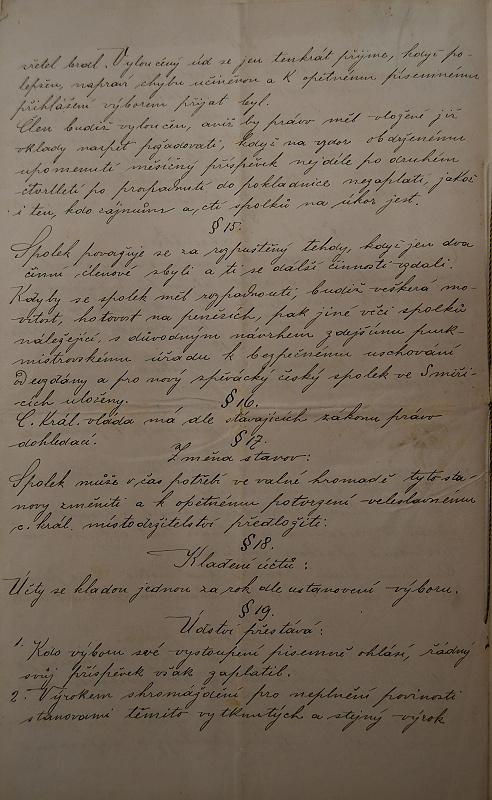 zřetel bral. Vyloučený úd se jen tenkrát přijme, když po-
lepšen, napraví chybu učiněnou a k opětnému písemnému
přihlášení výborem přijat byl.
Člen budiž vyloučen, aniž by právo měl vložené již
vklady nazpět požadovati, když na vzdor obdrženému
upomenutí měsíčný příspěvek nejdéle po druhém
čtvrtletí po propadnutí do pokladnice nezaplatí, jakož
i ten, kdo zájmům a cti spolků na úkor jest.
§ 15.
Spolek považuje se za rozpuštěný tehdy, když jen dva
činní členové zbyli a ti se další činnosti vzdali.
Kdyby se spolek měl rozpadnouti, budiž veškerá mo-
vitost, hotovost na penězích, pak jiné věci spolku
náležející, s důvodným návrhem zdejšímu purk-
mistrovskému úřadu k bezpečnému uschování
odevzdány a pro nový spěvácký český spolek ve Smiři-
cích uloženy.
§ 16.
C. Král. vláda má dle stávajících zákonu právo
dohledací.
§ 17.
Změna stavov:
Spolek může v čas potřeby ve valné hromadě tyto sta-
novy změniti a k opětnému potvrzení veleslavnému
c. král. místodržitelství předložiti.
§ 18.
Kladení účtů:
Účty se kladou jednou za rok dle ustanovení výboru.
§ 19.
Údství přestává:
1. Kdo výboru své vystoupení písemně ohlásí, řádný
svůj příspěvek však zaplatil.
2. Výrokem shromáždění pro neplnění povinosti
stanovami těmito vytknutých a stejný výrok